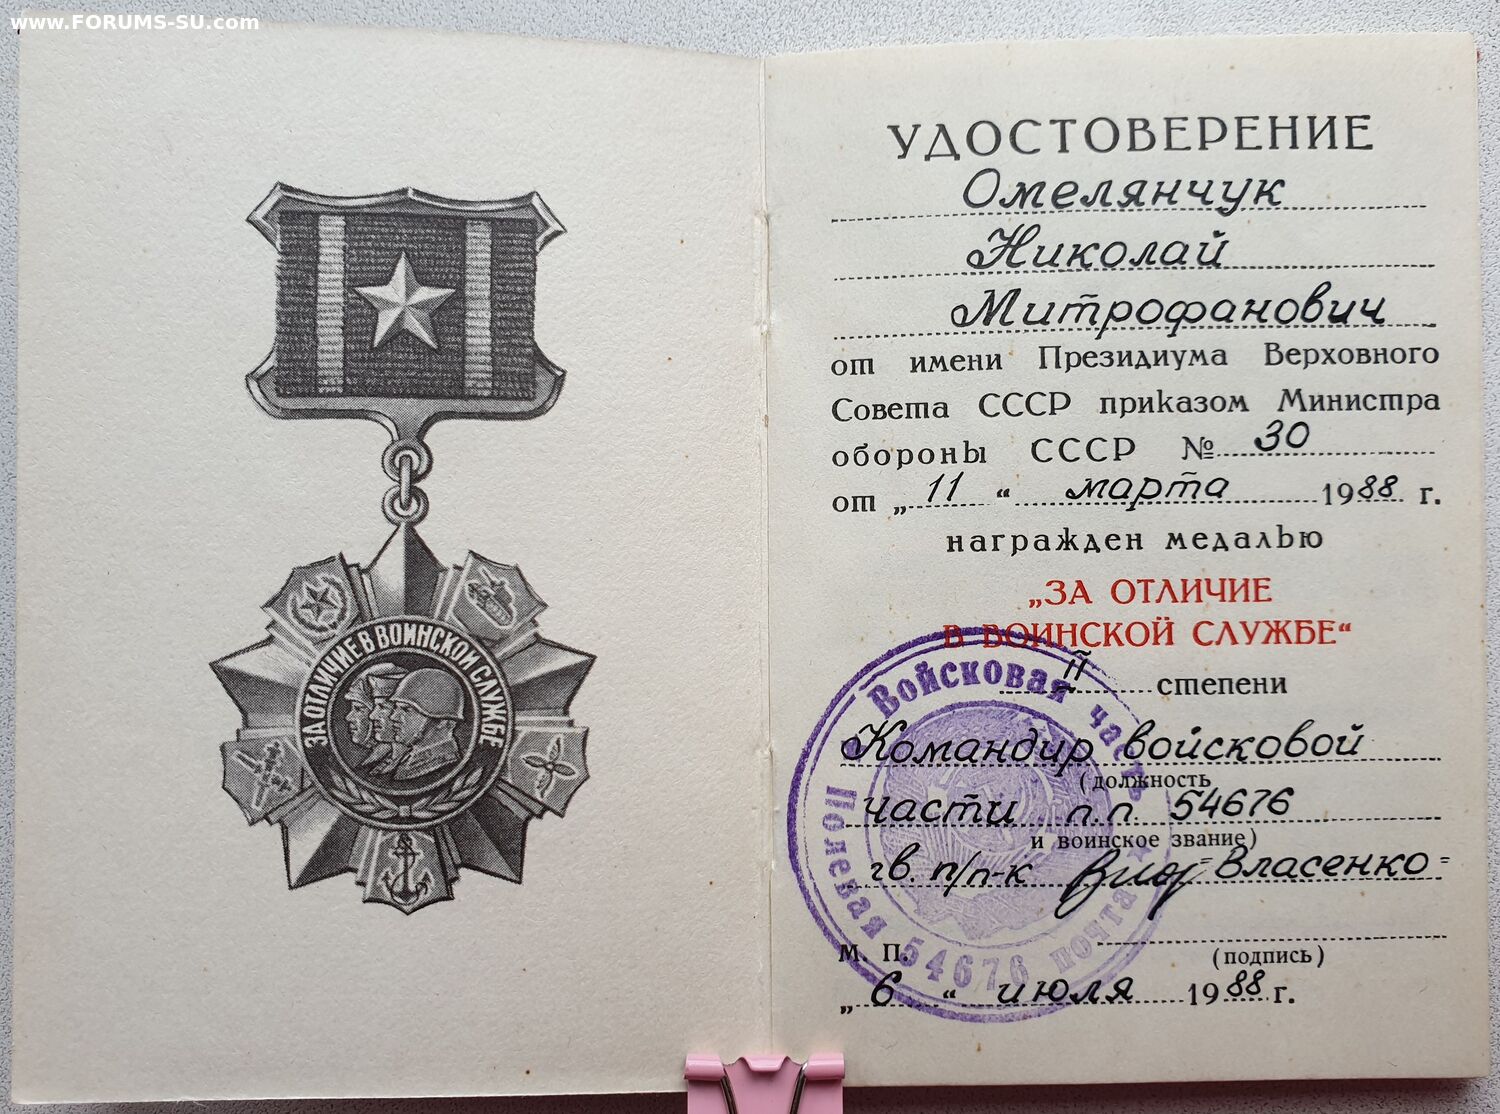 www.FORUMS-SU.com
ЗА ОТЛИЧИЕ В ВОИНСКОЙ СЛУЖБЕ
УДОСТОВЕРЕНИЕ
Омелянчук
Николай
Митрофанович
от имени Президиума Верховного
Совета СССР приказом Министра
обороны СССР № 30
от „11“ марта 1988 г.
награжден медалью
„ЗА ОТЛИЧИЕ
В ВОИНСКОЙ СЛУЖБЕ“
II степени
Командир войсковой
(должность
части п.п. 54676
и воинское звание)
гв. п/п-к Власенко
(подпись)
М. П.
„6“ июля 1988 г.
Войсковая часть
Полевая почта
54676